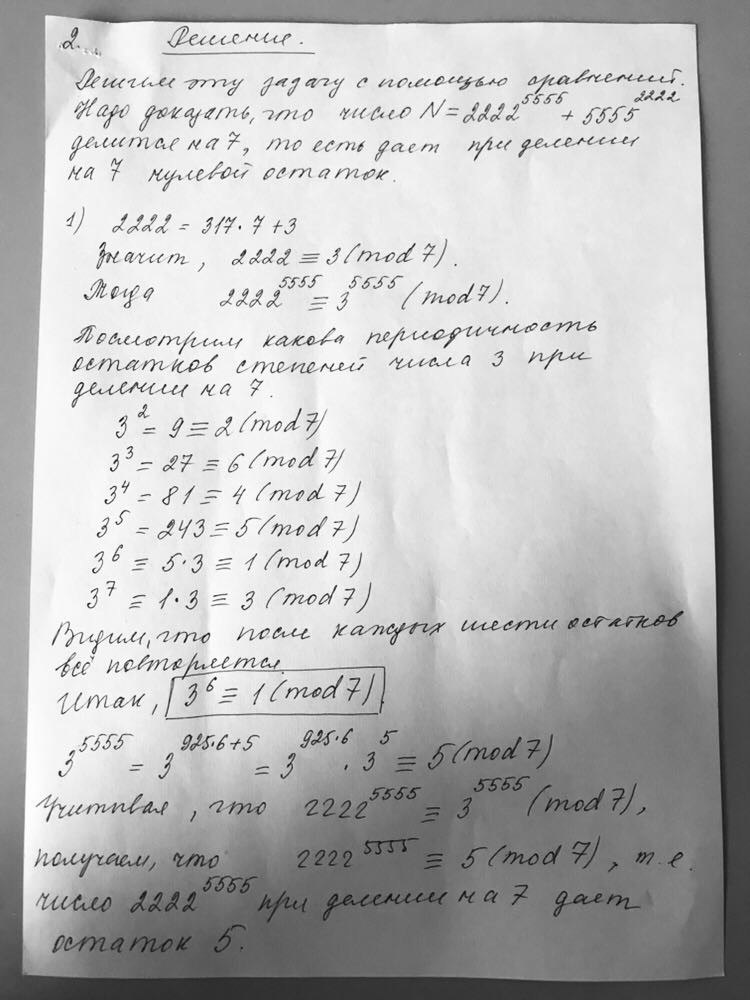 2. Решение.
Решим эту задачу с помощью сравнений.
Надо доказать, что число N = 2222^5555 + 5555^2222
делится на 7, то есть дает при делении
на 7 нулевой остаток.
1) 2222 = 317·7 + 3
Значит, 2222 ≡ 3 (mod 7).
Тогда 2222^5555 ≡ 3^5555 (mod 7).
Посмотрим какова периодичность
остатков степеней числа 3 при
делении на 7.
3^2 = 9 ≡ 2 (mod 7)
3^3 = 27 ≡ 6 (mod 7)
3^4 = 81 ≡ 4 (mod 7)
3^5 = 243 ≡ 5 (mod 7)
3^6 ≡ 5·3 ≡ 1 (mod 7)
3^7 ≡ 1·3 ≡ 3 (mod 7)
Видим, что после каждых шести остатков
всё повторяется.
Итак, 3^6 ≡ 1 (mod 7)
3^5555 = 3^925·6+5 = 3^925·6 · 3^5 ≡ 5 (mod 7)
Учитывая, что 2222^5555 ≡ 3^5555 (mod 7),
получаем, что 2222^5555 ≡ 5 (mod 7), т.е.
число 2222^5555 при делении на 7 дает
остаток 5.